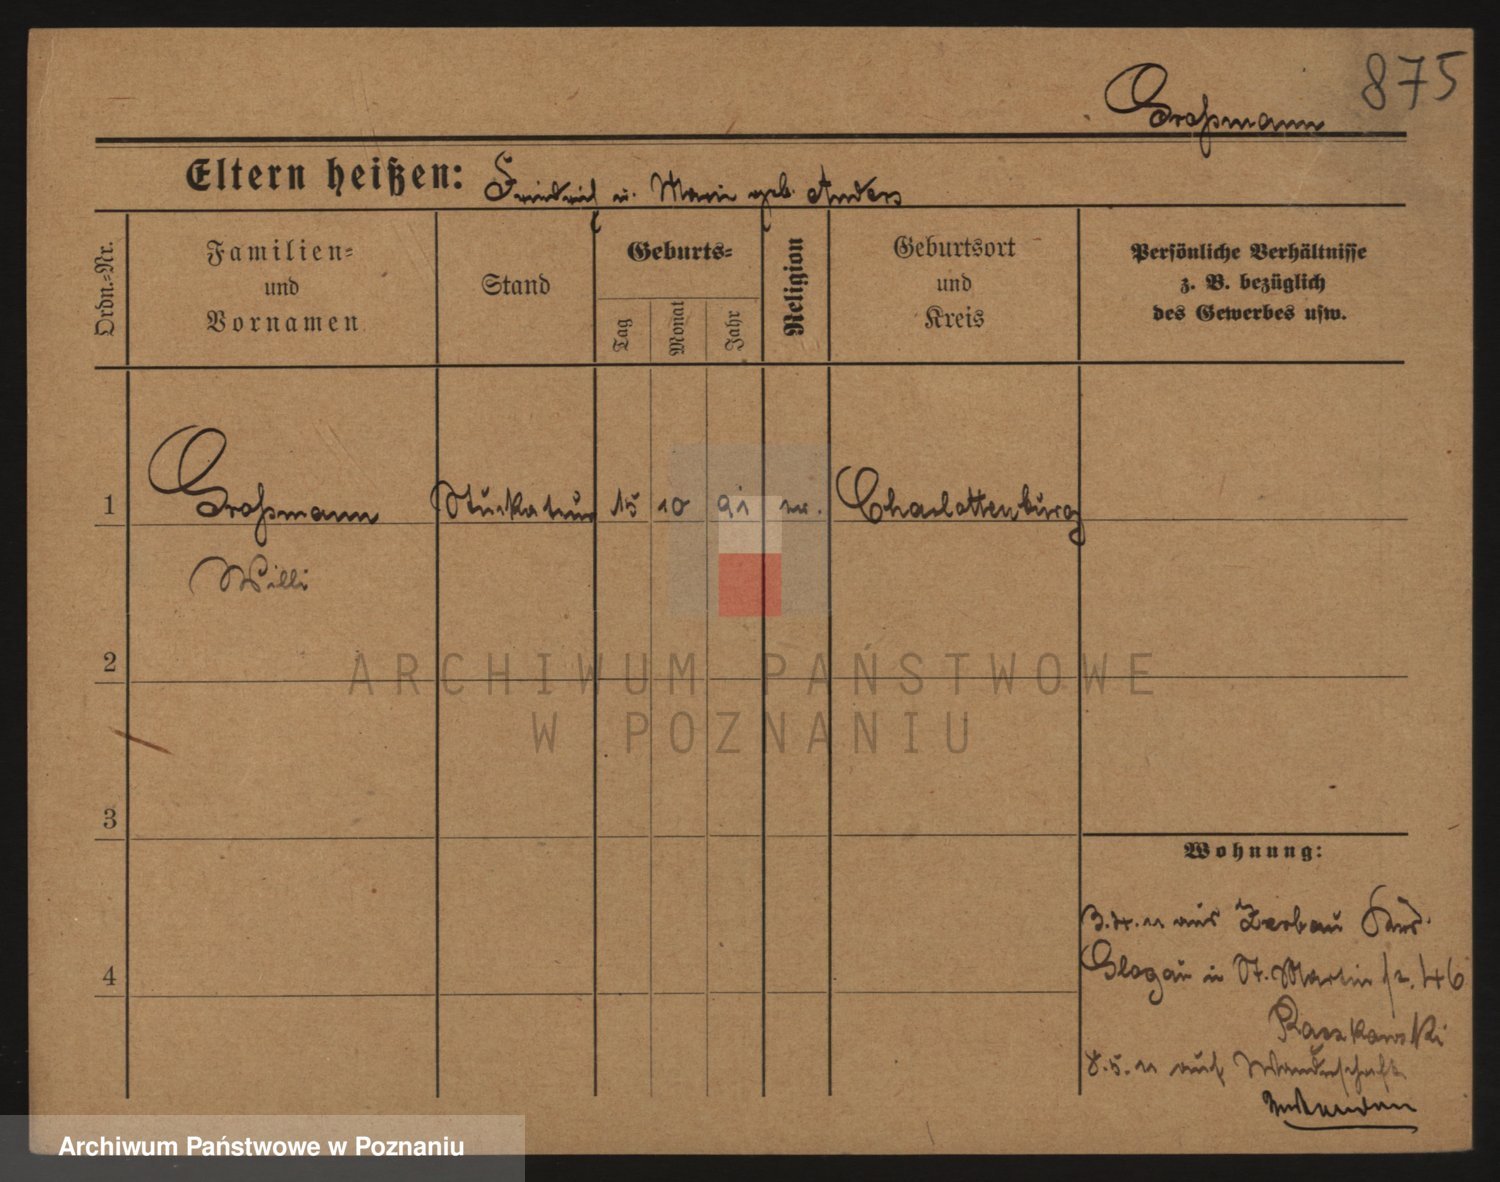 875
Großmann
Eltern heißen: Friedrich u. Marie geb. Anders
Ordn.-Nr.
Familien-
und
Vornamen
Stand
Geburts-
Tag
Monat
Jahr
Religion
Geburtsort
und
Kreis
Persönliche Verhältnisse
z. B. bezüglich
des Gewerbes usw.
1 Großmann Stuckateur 15 10 91 ev. Charlottenburg
Willi
2
ARCHIWUM PAŃSTWOWE
W POZNANIU
3
Wohnung:
aus Zerbau
4
Glogau in St. Martin 46
Raczkowski
8.5.11 auf Wanderschaft
Archiwum Państwowe w Poznaniu